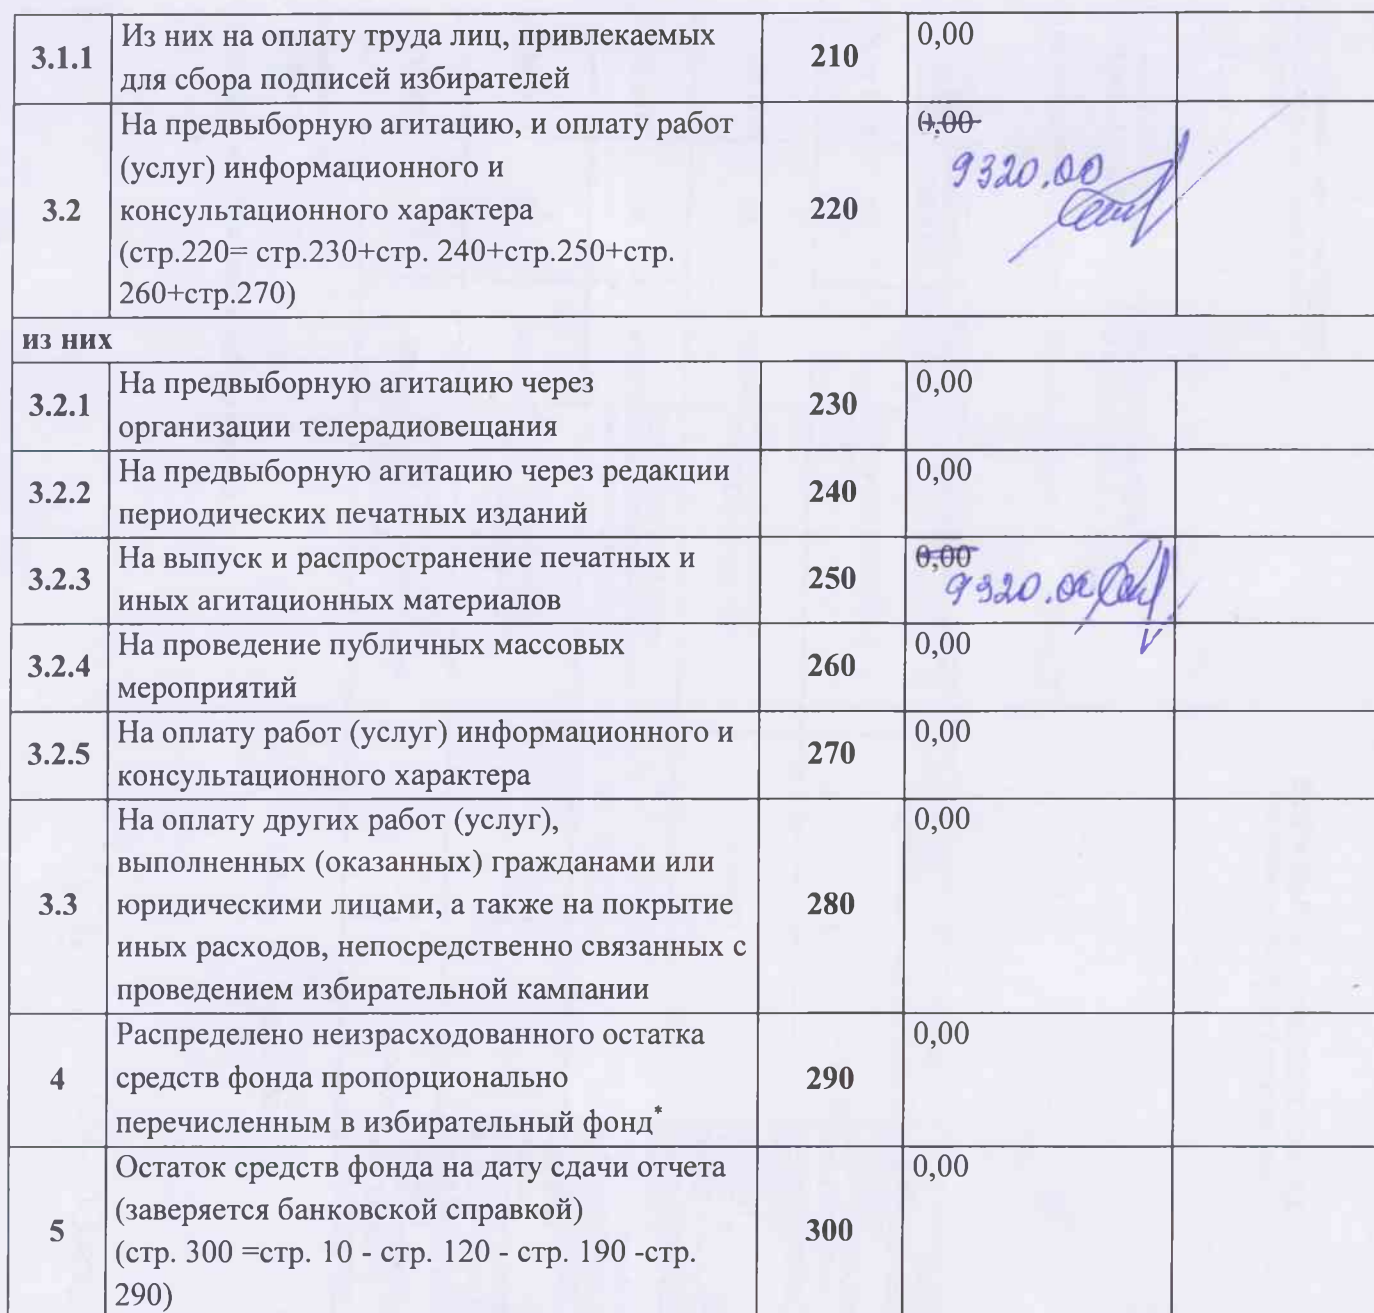 3.1.1 Из них на оплату труда лиц, привлекаемых 210 0,00
для сбора подписей избирателей
На предвыборную агитацию, и оплату работ 0,00
(услуг) информационного и 9320.00
3.2 консультационного характера 220
(стр.220= стр.230+стр. 240+стр.250+стр.
260+стр.270)
из них
3.2.1 На предвыборную агитацию через 230 0,00
организации телерадиовещания
3.2.2 На предвыборную агитацию через редакции 240 0,00
периодических печатных изданий
3.2.3 На выпуск и распространение печатных и 250 0,00
иных агитационных материалов 9320.00
3.2.4 На проведение публичных массовых 260 0,00
мероприятий
3.2.5 На оплату работ (услуг) информационного и 270 0,00
консультационного характера
На оплату других работ (услуг), 0,00
выполненных (оказанных) гражданами или
3.3 юридическими лицами, а также на покрытие 280
иных расходов, непосредственно связанных с
проведением избирательной кампании
Распределено неизрасходованного остатка 0,00
4 средств фонда пропорционально 290
перечисленным в избирательный фонд*
Остаток средств фонда на дату сдачи отчета 0,00
(заверяется банковской справкой)
5 (стр. 300 =стр. 10 - стр. 120 - стр. 190 -стр. 300
290)